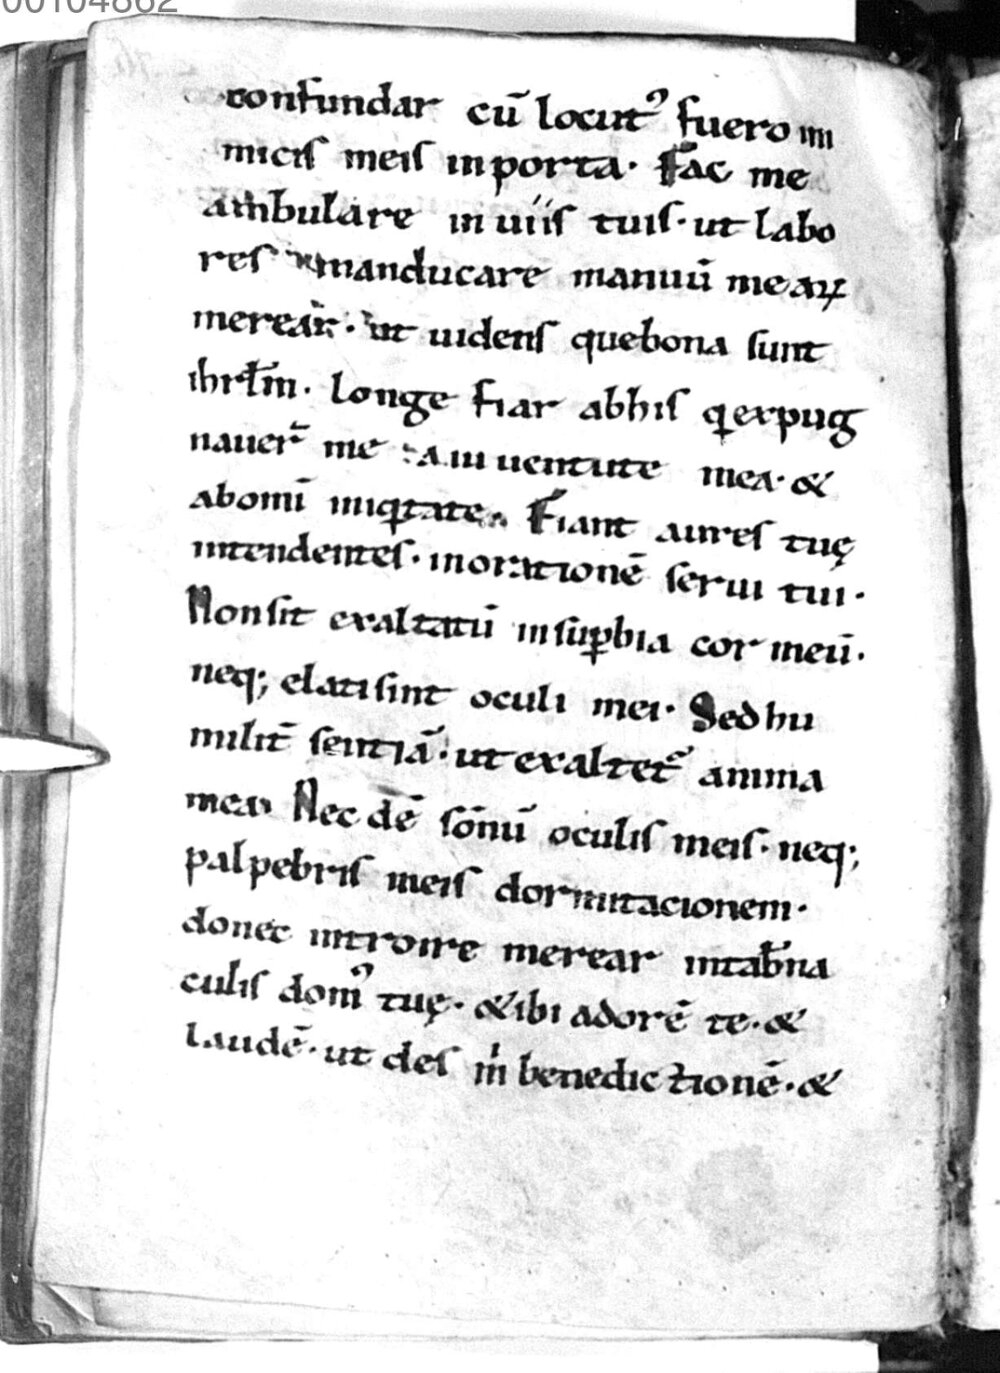 00104862
confundar cū locut᾽ fuero ini
micis meis in porta· Fac me
ambulare in uiis tuis· ut labo
res manducare manuū meaꝝ
merear· ut uidens que bona sunt
ihrłm· Longe fiar ab his q expug
nauer̄ me a iuuentute mea· &
ab omī iniq̄tate· Fiant aures tuę
intendentes· in orationē serui tui·
Non sit exaltatū in suꝑbia cor meū·
neq; elati sint oculi mei· Sed hu
milit̄ sentiā· ut exaltet᷑ anima
mea· Nec dē sōnū oculis meis· neq;
palpebris meis dormitacionem·
donec introire merear in tab̄na
culis dom᾽ tuę· & ibi adorē te· &
laudē· ut des m̍ benedictionē· &